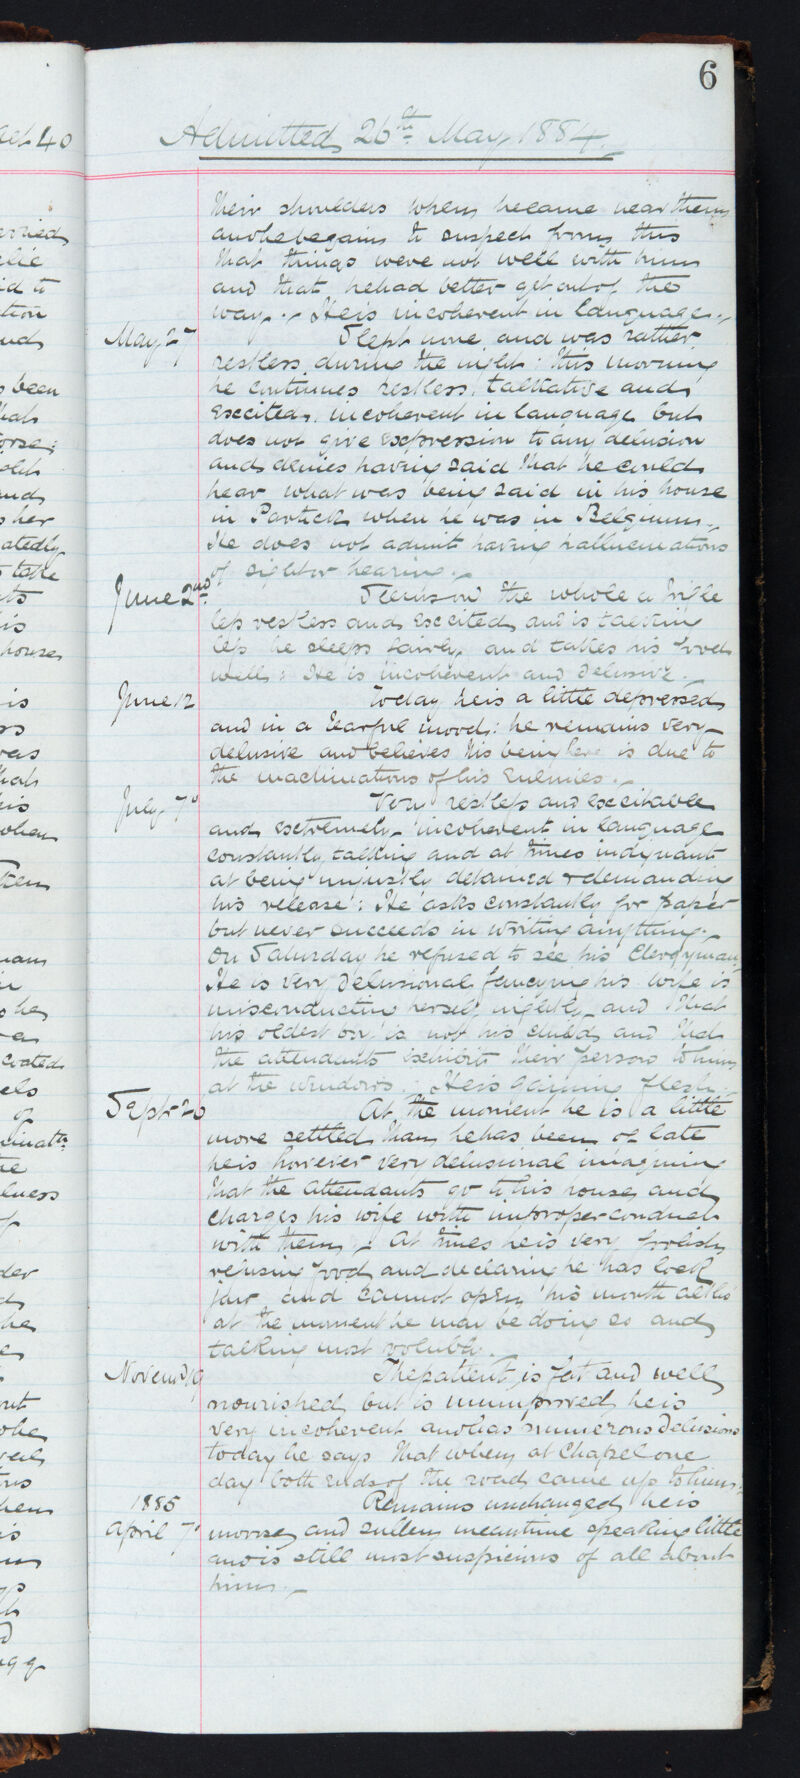 6
Admitted 26th May 1884
their shoulders when he came near them
and he begain to suspect from this
that things were not well with him
and that he had better get out of the
way. He is incoherent in language.
May 27 Slept none and was rather
restless during the night: this morning
he continues restless, talkative and
excited, incoherent in language but
does not give expression to any delusion
and denies having said that he could
hear what was being said in his house
in Partick when he was in Belgium.
He does not admit having hallucinations
of sight or hearing.
June 2nd Seems on the whole a trifle
less restless and excited, and is talking
less he sleeps fairly and takes his food
well: He is incoherent and delusive.
June 12 Today he is a little depressed
and in a tearful mood: he remains very
delusive and believes his being here is due to
the machinations of his enemies.
July 7 Very restless and excitable
and extremely incoherent in language
constantly talking and at times indignant
at being unjustly detained & demanding
his release: He asks constantly for paper
but never succeeds in writing anything.
On Saturday he refused to see his Clergyman
He is very delusional fancying his wife is
misconducting herself nightly and that
his oldest on is not his child and that
the attendants exhibit their persons to him
at the windows. He is gaining flesh.
Sept 20 At the moment he is a little
more settled than he has been of late
he is however very delusional imagining
that the attendants go to his house and
charges his wife with improper conduct
with them. At times he is very foolish
refusing food and declaring he has lock
jaw and cannot open his mouth altho
at the moment he may be doing so and
talking most volubly.
Novem 19 The patient is fat and well
nourished but is unimproved he is
very incoherent and has numerous delusions
today he says that when at Chapel one
day both ends of the road came up to him.
1885 Remains unchanged he is
April 7 morose and sullen meantime speaking little
and is still most suspicious of all about
him.